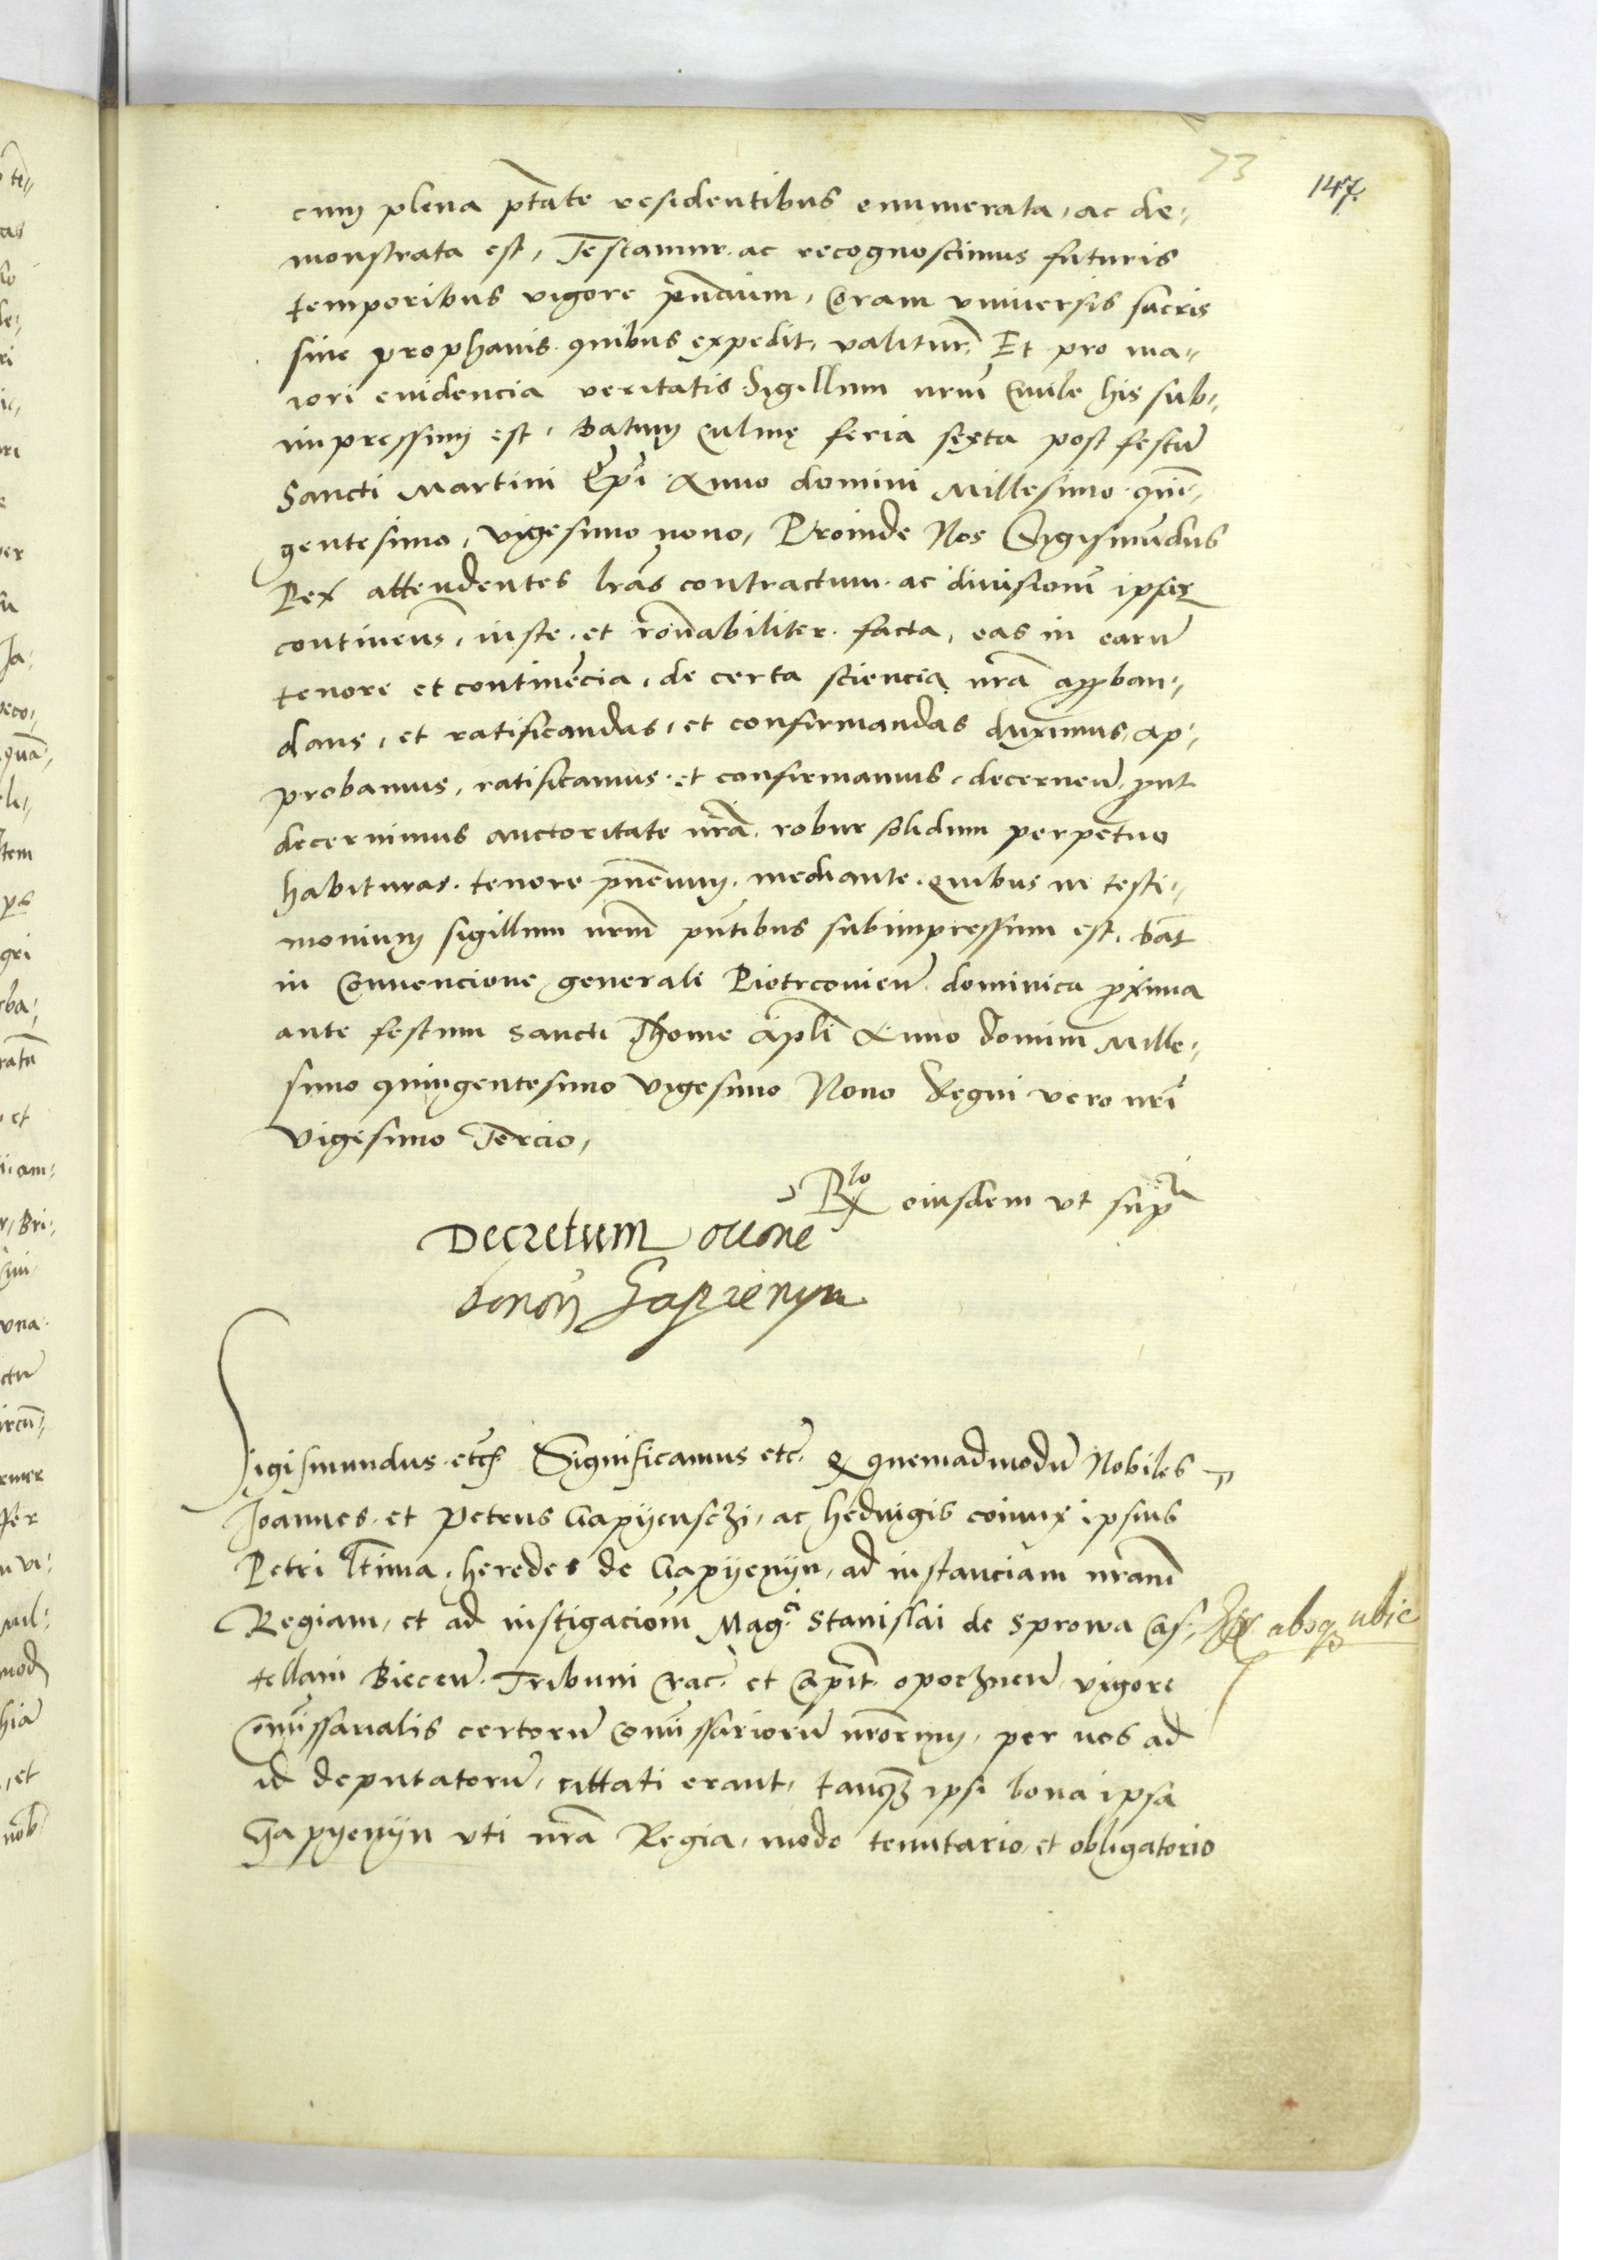 73
147.
cum plena ptãte residentibus enumerata, ac de-
monstrata est, Testamur ac recognoscimus futuris
temporibus vigore pñcium, Coram vniuersis sacris
siue prophanis quibus expedit, valitur, Et pro ma-
iori euidencia veritatis Sigillum nrm Ciuile his sub-
impressum est, Datum Culmę feria sexta post festũ
Sancti Martini Epi Anno domini Millesimo quin-
gentesimo, vigesimo nono, Proinde Nos Sigismũdus
Rex attendentes lrãs contractum ac diuisionũ ipsar
continens, iuste et rõnabiliter facta, eas in earũ
tenore et continẽcia, de certa sciencia nrã approban-
dans, et ratificandas, et confirmandas duximus, ap-
probamus, ratificamus et confirmamus, decernen prout
decernimus auctoritate nrã, robur solidum perpetuo
habituras, tenore pñcium, mediante, quibus in testi-
monium sigillum nrm pñtibus subimpressum est, Dat
in Conuencione generali Piotrcouien dominica pxima
ante festum sancti Thome apli Anno domini Mille-
simo quingentesimo vigesimo Nono Regni vero nri
vigesimo Tercio,
Rlo eiusdem vt supra
Decretum rõne
bonorũ Gapienyn
Sigismundus etc Significamus etc q quemadmodũ Nobiles
Joannes et Petrus Gapyenszi, ac hedwigis coniux ipsius
Petri ltima, heredes de Gapyenyn, ad instanciam nrãm
Regiam, et ad instigaciom Magci Stanislai de Sprowa Cas-
absq ubic
tellani Biecen Tribuni Crac et Capit opocznen vigore
Comissarialis certorũ Comissariorũ nrõrum, per nos ad
id deputatorũ, cittati erant, tanq ipsi bona ipsa
Gapyenyn vti nrã Regia, modo tenutario et obligatorio